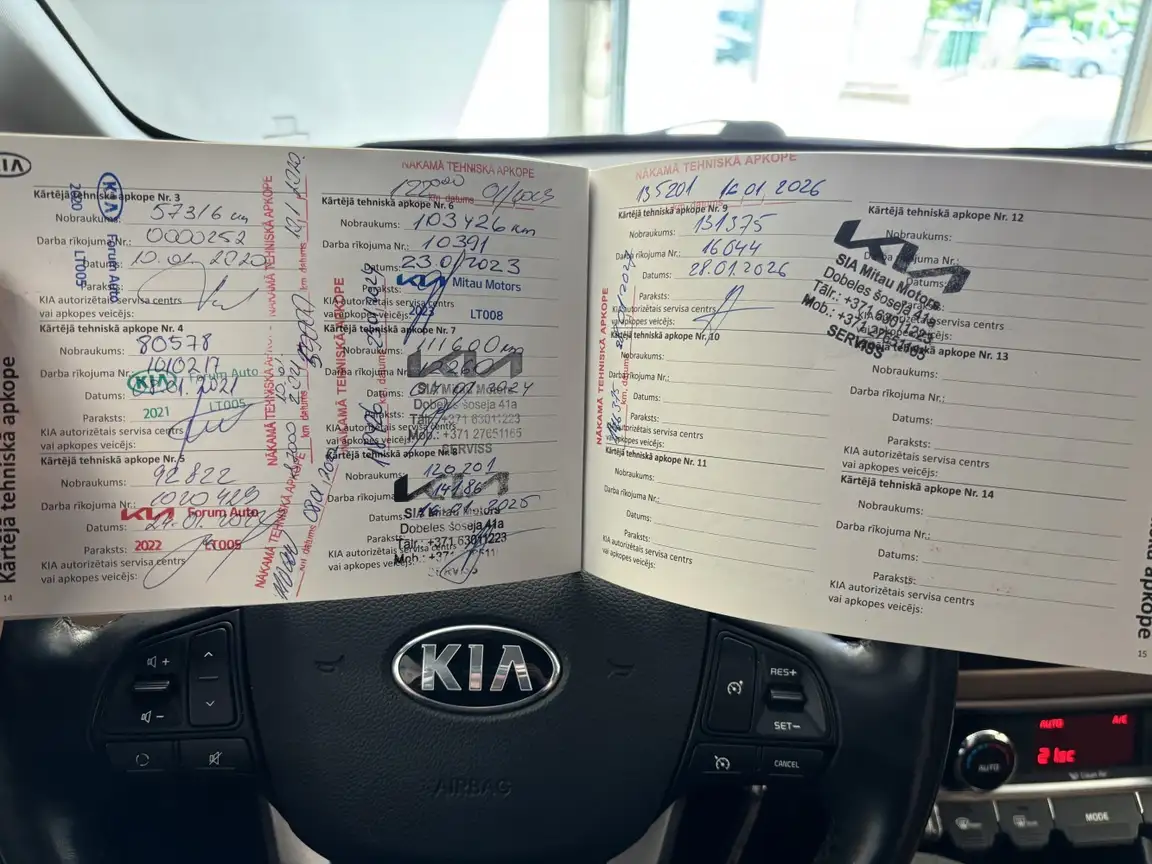 KIA
Kārtējā tehniskā apkope Nr. 3
Nobraukums: 57316 km
Darba rīkojuma Nr.: 0000252
Datums: 10. 2020
Paraksts:
KIA autorizētais servisa centrs
vai apkopes veicējs:
KIA Forum Auto
2020 LT005
Kārtējā tehniskā apkope Nr. 4
Nobraukums: 80578
Darba rīkojuma Nr.:
Datums: 01.2021
KIA Forum Auto
Paraksts: 2021 LT005
KIA autorizētais servisa centrs
vai apkopes veicējs:
Kārtējā tehniskā apkope Nr. 5
Nobraukums: 92822
Darba rīkojuma Nr.: 1020429
Datums:
KIA Forum Auto
Paraksts: 2022 LT005
KIA autorizētais servisa centrs
vai apkopes veicējs:
NĀKAMĀ TEHNISKĀ APKOPE
km datums
NĀKAMĀ TEHNISKĀ APKOPE
km datums
NĀKAMĀ TEHNISKĀ APKOPE
km datums
NĀKAMĀ TEHNISKĀ APKOPE
km datums
NĀKAMĀ TEHNISKĀ APKOPE
km datums
Kārtējā tehniskā apkope Nr. 6
Nobraukums: 103426 km
Darba rīkojuma Nr.: 10391
Datums: 23.01/2023
KIA Mitau Motors
Paraksts:
KIA autorizētais servisa centrs
vai apkopes veicējs:
2023 LT008
Kārtējā tehniskā apkope Nr. 7
Nobraukums: 111600 km
Darba rīkojuma Nr.:
Datums: 2024
KIA
SIA Mitau Motors
Dobeles šoseja 41a
Tālr.: +371 63011223
Mob.: +371 27651165
SERVISS
Paraksts:
KIA autorizētais servisa centrs
vai apkopes veicējs:
Kārtējā tehniskā apkope Nr. 8
Nobraukums: 120201
Darba rīkojuma Nr.: 14186
Datums: 2025
KIA
SIA Mitau Motors
Dobeles šoseja 41a
Tālr.: +371 63011223
Mob.: +371
Paraksts:
KIA autorizētais servisa centrs
vai apkopes veicējs:
Kārtējā tehniskā apkope
14
NĀKAMĀ TEHNISKĀ APKOPE
135201 16.01.2026
km datums
Kārtējā tehniskā apkope Nr. 9
Nobraukums: 131375
Darba rīkojuma Nr.: 16044
Datums: 28.01.2026
Paraksts:
KIA autorizētais servisa centrs
vai apkopes veicējs:
NĀKAMĀ TEHNISKĀ APKOPE
km datums
Kārtējā tehniskā apkope Nr. 10
Nobraukums:
Darba rīkojuma Nr.:
Datums:
Paraksts:
KIA autorizētais servisa centrs
vai apkopes veicējs:
Kārtējā tehniskā apkope Nr. 11
Nobraukums:
Darba rīkojuma Nr.:
Datums:
Paraksts:
KIA autorizētais servisa centrs
vai apkopes veicējs:
Kārtējā tehniskā apkope Nr. 12
Nobraukums:
Darba rīkojuma Nr.:
Datums:
Paraksts:
KIA autorizētais servisa centrs
vai apkopes veicējs:
KIA
SIA Mitau Motors
Dobeles šoseja 41a
Tālr.: +371 63011223
Mob.: +371 27651165
SERVISS
Kārtējā tehniskā apkope Nr. 13
Nobraukums:
Darba rīkojuma Nr.:
Datums:
Paraksts:
KIA autorizētais servisa centrs
vai apkopes veicējs:
Kārtējā tehniskā apkope Nr. 14
Nobraukums:
Darba rīkojuma Nr.:
Datums:
Paraksts:
KIA autorizētais servisa centrs
vai apkopes veicējs:
apkope
15
KIA
AIRBAG
RES+
SET-
CANCEL
AUTO A/C
AUTO
Clean Air
MODE